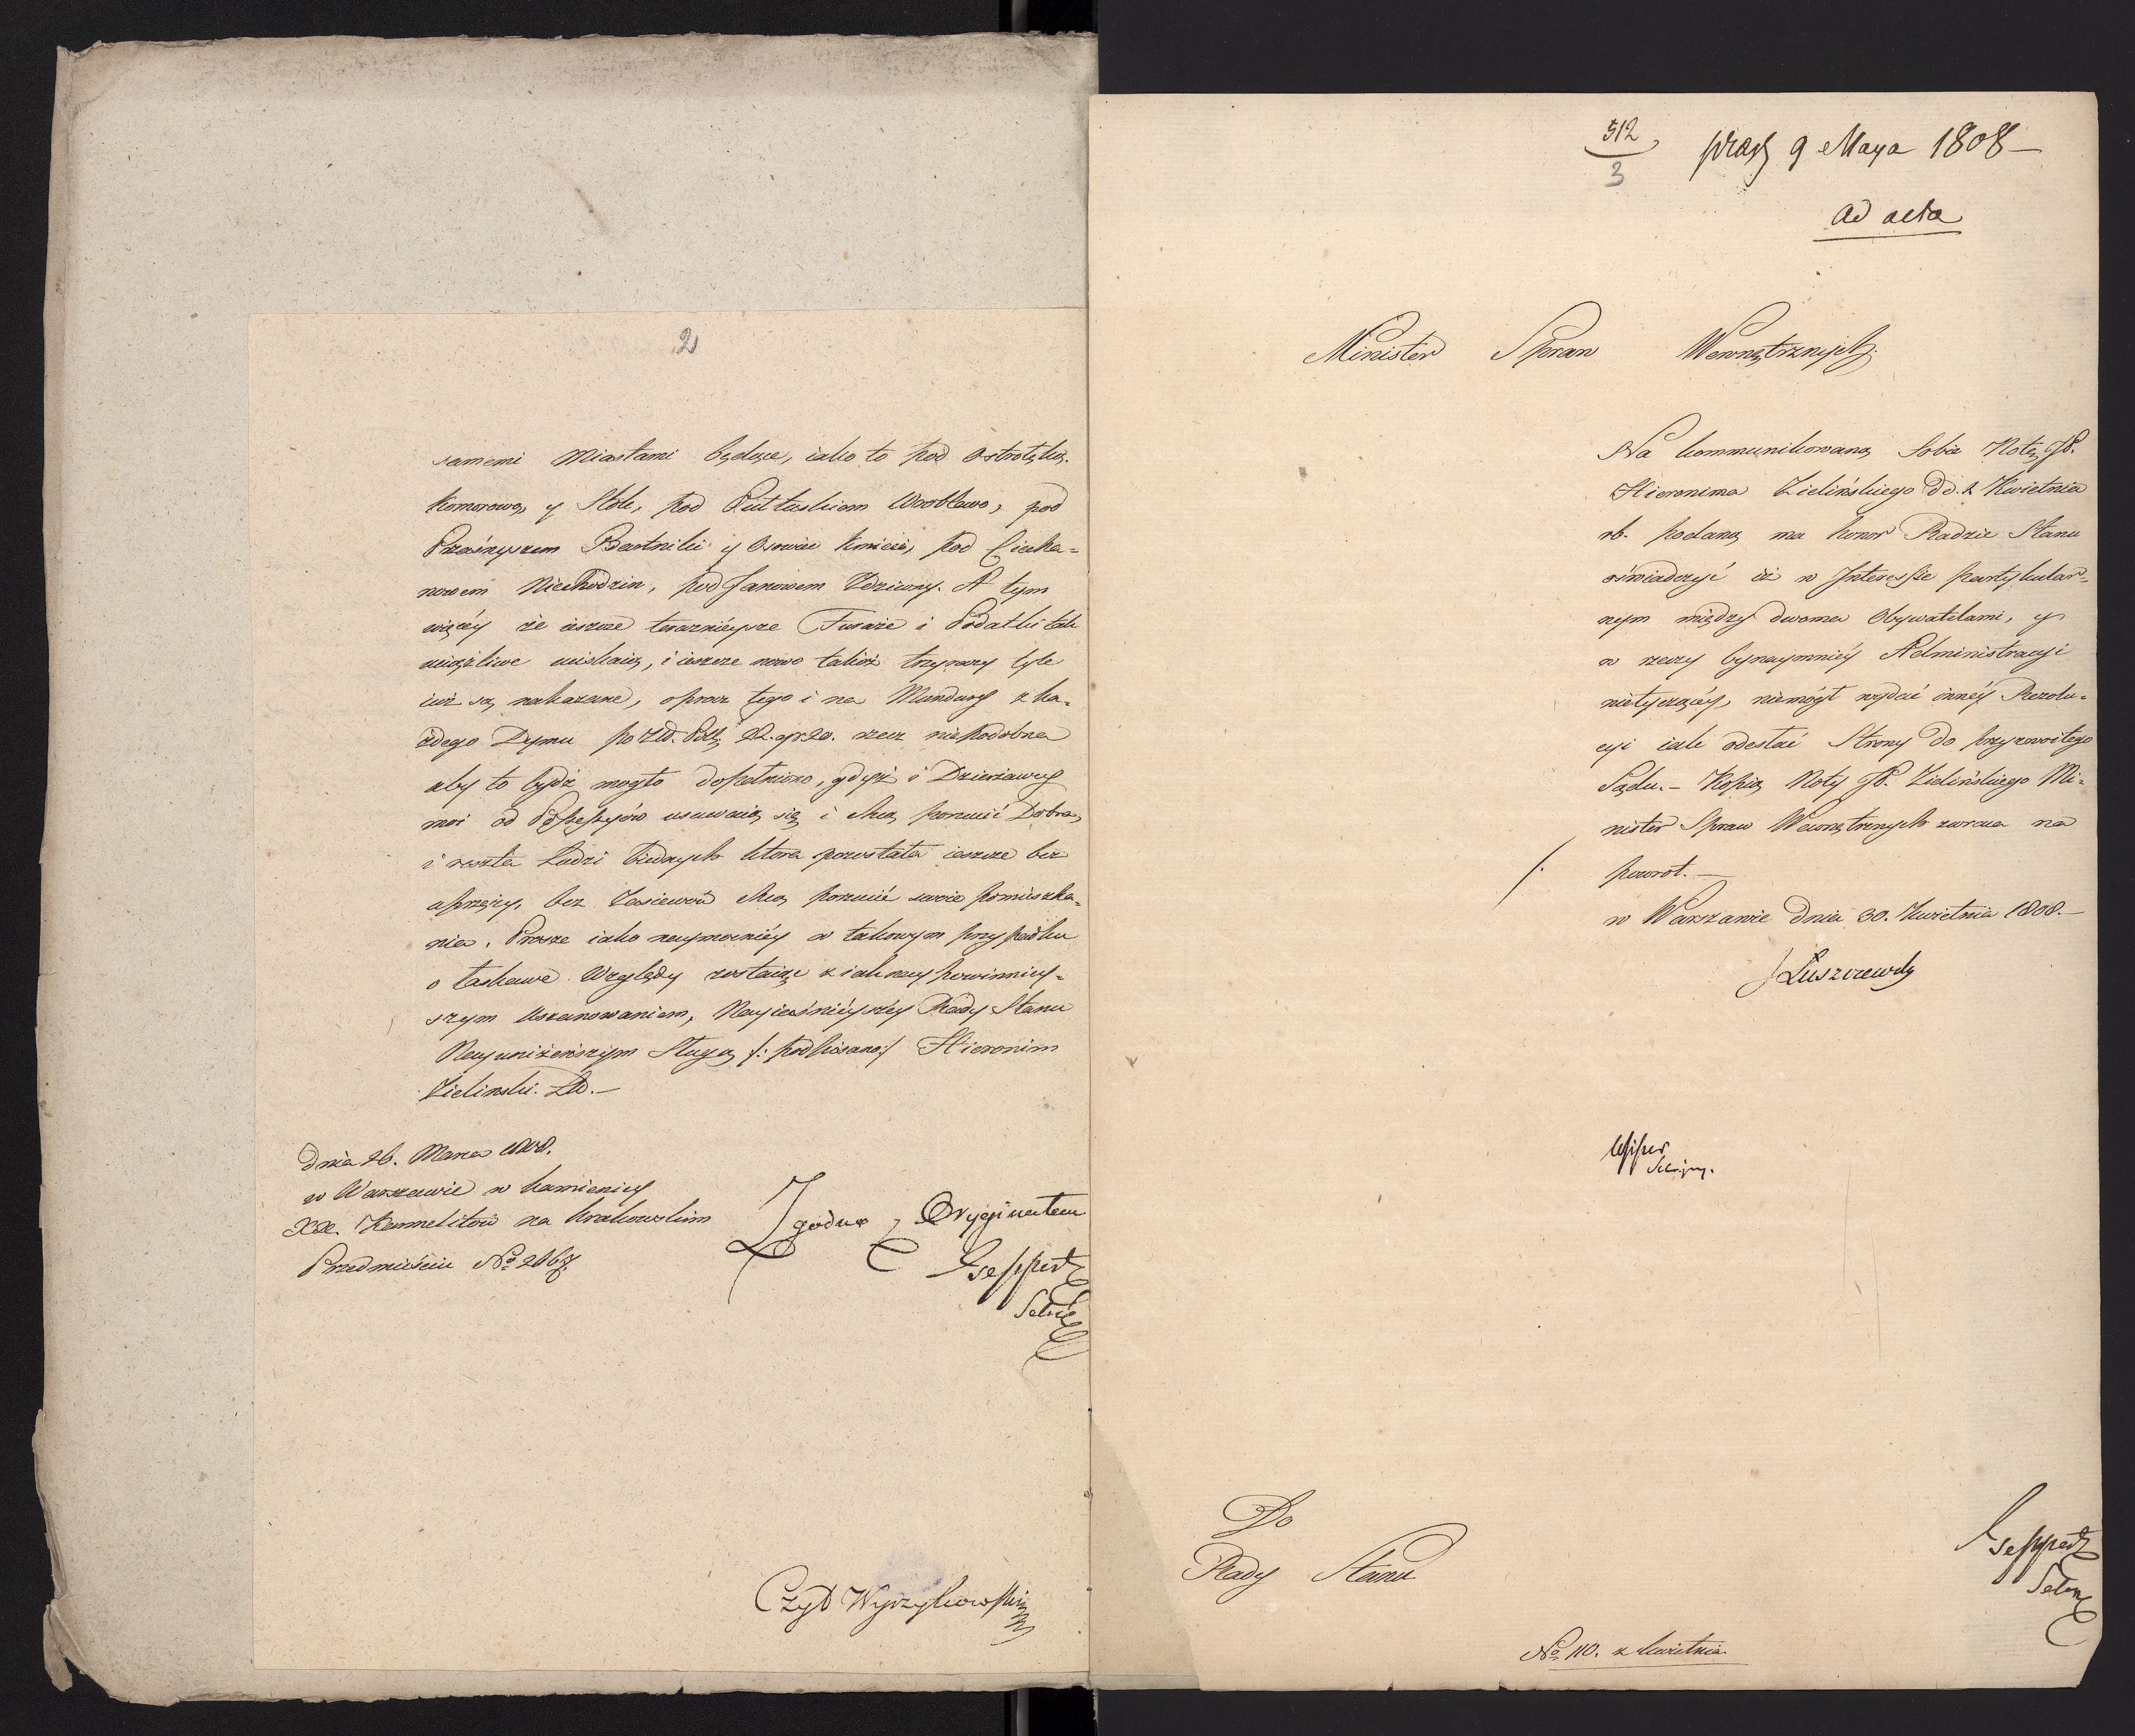 2
samemi Miastami będące, iako to pod Ostrołęką
Komorowo, y Stole, pod Pułtuskiem Wrobłewo, pod
Przasnyszem Bartniki y Osowiec Kmiecie, pod Ciecha=
nowem Niechodzin, pod Janowem Zdziwoy. A tym
więcéy że ieszcze teraznieysze Furaże i Podatki tak
uciążliwe uiskaią, i ieszcze nowo takież trzy razy tyle
iuż są nakazane, oprocz tego i na Mundury z ka=
żdego Dymu po Zł. Pol: 22. gr. 20. rzecz niepodobna
aby to bydź mogło dopełniono, gdyż i Dzierżawcy
moi od Possessyów usuwaią się i chcą porzucić Dobra,
i reszta Ludzi biednych ktora pozostała ieszcze bez
sprzęży, bez Zasiewów chcą porzucić swoie pomieszka=
nia. Prosze iako naymocniéy w takowym przypadku
o łaskawe Względy zostaiąc z iak naypowinniey=
szym Uszanowaniem, Nayiaśnieyszéy Rady Stanu
Nayuniżeńszym Sługą /: podpisano:/ Hieronim
Zielinski.
Dnia 26. Marca 1808.
w Warszawie w kamienicy
XX. Karmelitów na krakowskim
Przedmieściu No
Zgodno z Oryginałem
Geppert
Czyt Wyrzykowski
512
3
9 Maya 1808 –
ad acta
Minister Spraw Wewnętrznych.
Na kommunikowaną Sobie Notę JP.
Hieronima Zielińskiego Dd. 2 Kwietnia
rb. podaną ma honor Radzie Stanu
oświadczyć iż w Interessie partykular=
nym między dwoma Obywatelami, y
w rzeczy bynaymniéy Administracyi
nietyczącéy, niemógł wydać innéy Rezolu=
cyi iak odesłać Strony do przyzwoitego
Sądu. – Kopią Noty JP. Zielińskiego Mi=
nister Spraw Wewnętrznych zwraca na
powrot. –
w Warszawie Dnia 30. Kwietnia 1808. –
J Łuszczewski
Do
Rady Stanu
Geppert
No 110. z kwietnia